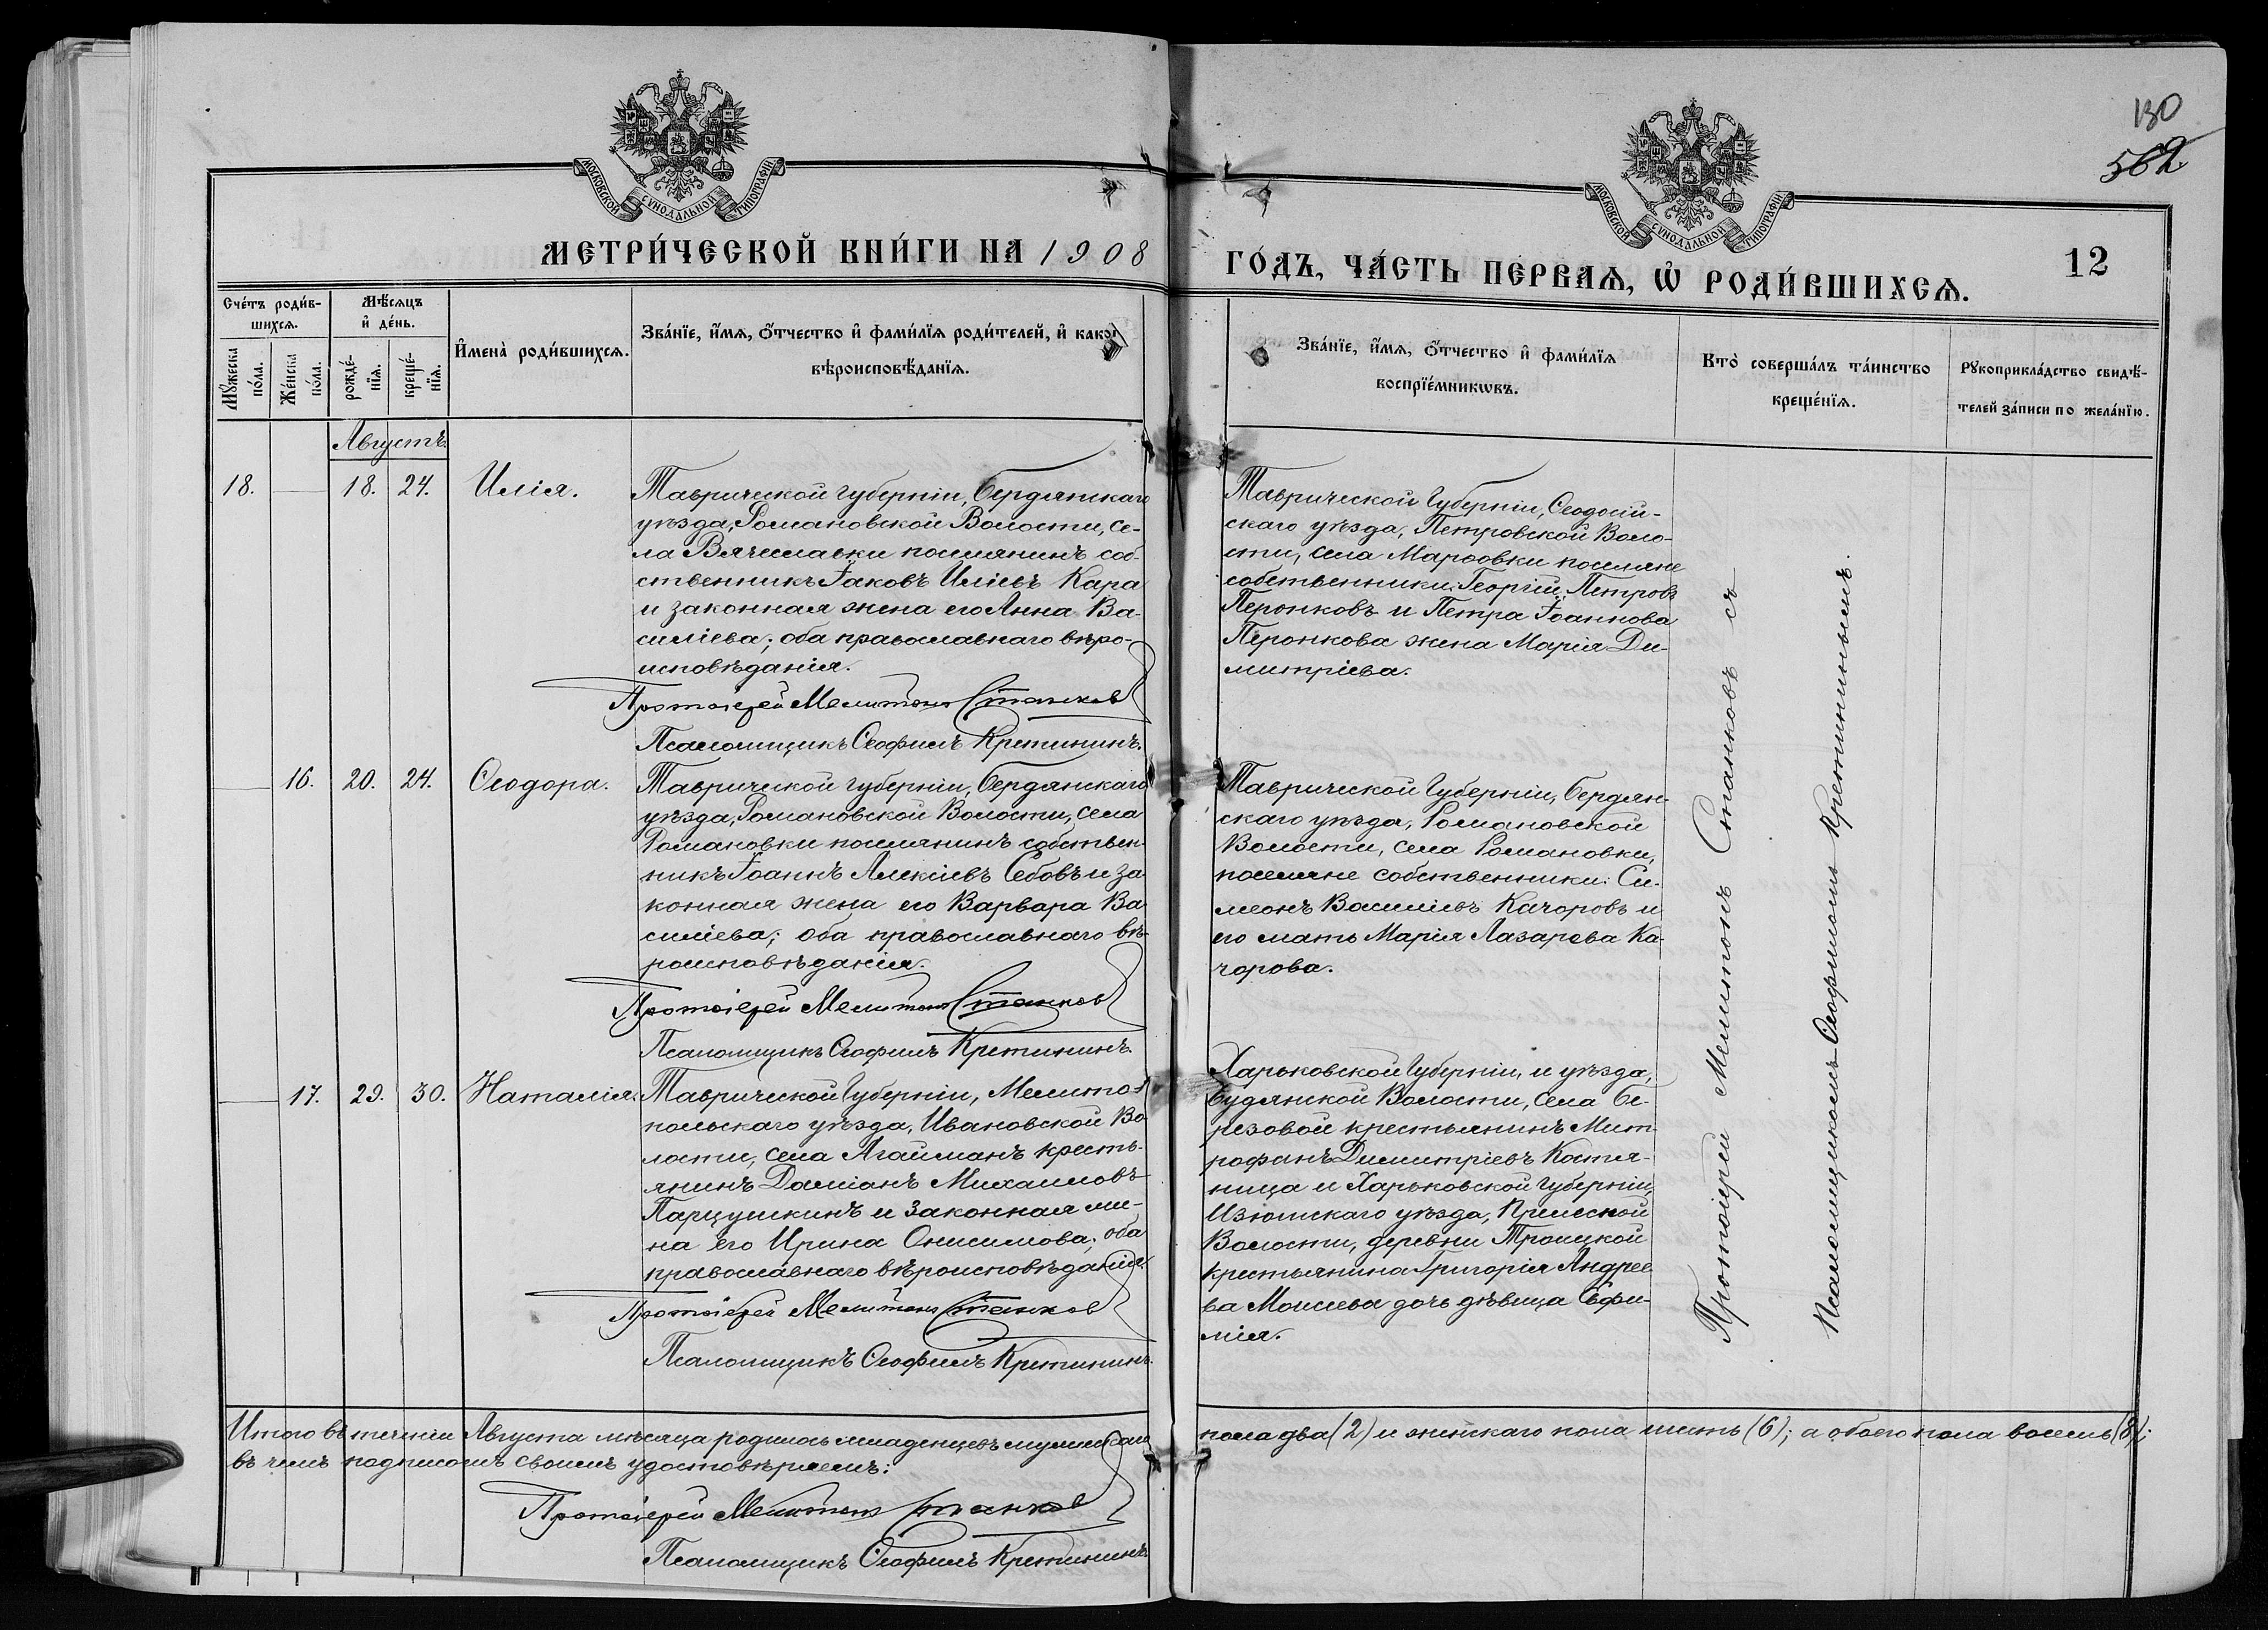 130
562.
МОСКОВСКОЙ СУНОДАЛЬНОЙ ТИПОГРАФІИ
МОСКОВСКОЙ СУНОДАЛЬНОЙ ТИПОГРАФІИ
МЕТРИ́ЧЕСКОЙ КНИ́ГИ НА 1908
ГО́ДЪ, ЧА́СТЬ ПЕРВАѦ, Ѡ҆ РОДИ́ВШИХСѦ.
12
Сче́тъ роди́в-
шихсѧ.
Мѣ́сѧцъ
и҆ де́нь.
Мꙋ́жеска
по́ла.
Же́нска
по́ла.
рожде́-
нїѧ.
креще́-
нїѧ.
И҆мена̀ роди́вшихсѧ.
Зва́нїе, и҆́мѧ, ѻ҆́тчество и҆ фами́лїѧ роди́телей, и҆ како́гѡ
вѣроисповѣ́данїѧ.
Зва́нїе, и҆́мѧ, ѻ҆́тчество и҆ фами́лїѧ
воспрїе́мникѡвъ.
Кто̀ соверша́лъ та́инство
креще́нїѧ.
Рꙋкоприкла́дство свидѣ́-
телей за́писи по жела́нїю.
Августъ.
18.
18. 24.
Илія.
Таврической губерніи, Бердянскаго
уѣзда, Романовской Волости, се-
ла Вячеславки поселянинъ соб-
ственникъ Іаковъ Иліевъ Кара
и законная жена его Анна Ва-
силіева; оба православнаго вѣро-
исповѣданія.
Протоіерей Мелитонъ Станковъ
Псаломщикъ Ѳеофилъ Кретининъ.
Таврической Губерніи, Ѳеодосій-
скаго уѣзда, Петровской Воло-
сти, села Марѳовки поселяне
собственники: Георгій Петровъ
Перонковъ и Петра Іоаннова
Перонкова жена Марія Ди-
митріева.
16. 20. 24.
Ѳеодора.
Таврической губерніи, Бердянскаго
уѣзда, Романовской Волости, села
Романовки поселянинъ собствен-
никъ Іоаннъ Алексіевъ Себовъ и за-
конная жена его Варвара Ва-
силіева; оба православнаго вѣ-
роисповѣданія.
Протоіерей Мелитонъ Станковъ
Псаломщикъ Ѳеофилъ Кретининъ.
Таврической Губерніи, Бердян-
скаго уѣзда, Романовской
Волости, села Романовки,
поселяне собственники: Си-
меонъ Василіевъ Качоровъ и
его мать Марія Лазарева Ка-
чорова.
17. 29. 30.
Наталія.
Таврической Губерніи, Мелито-
польскаго уѣзда, Ивановской Во-
лости, села Агайманъ кресть-
янинъ Даміанъ Михаиловъ
Парцушкинъ и законная же-
на его Ирина Онисимова; оба
православнаго вѣроисповѣданія.
Протоіерей Мелитонъ Станковъ
Псаломщикъ Ѳеофилъ Кретининъ.
Харьковской Губерніи, и уѣзда,
Будянской Волости, села Бе-
резовой крестьянинъ Мит-
рофанъ Димитріевъ Костя-
ница и Харьковской Губерніи,
Изюмскаго уѣзда,
Волости, деревни Троицкой
крестьянина Григорія Андрее-
ва Моисеева дочь дѣвица Евфи-
мія.
Протоіерей Мелитонъ Станковъ съ
Псаломщикомъ Ѳеофиломъ Кретининымъ.
Итого въ теченіи Августа мѣсяца родилось младенцевъ мужескаго
пола два (2) и женскаго пола шесть (6); а обоего пола восемь (8);
въ чемъ подписомъ своимъ удостовѣряемъ:
Протоіерей Мелитонъ Станковъ
Псаломщикъ Ѳеофилъ Кретининъ.